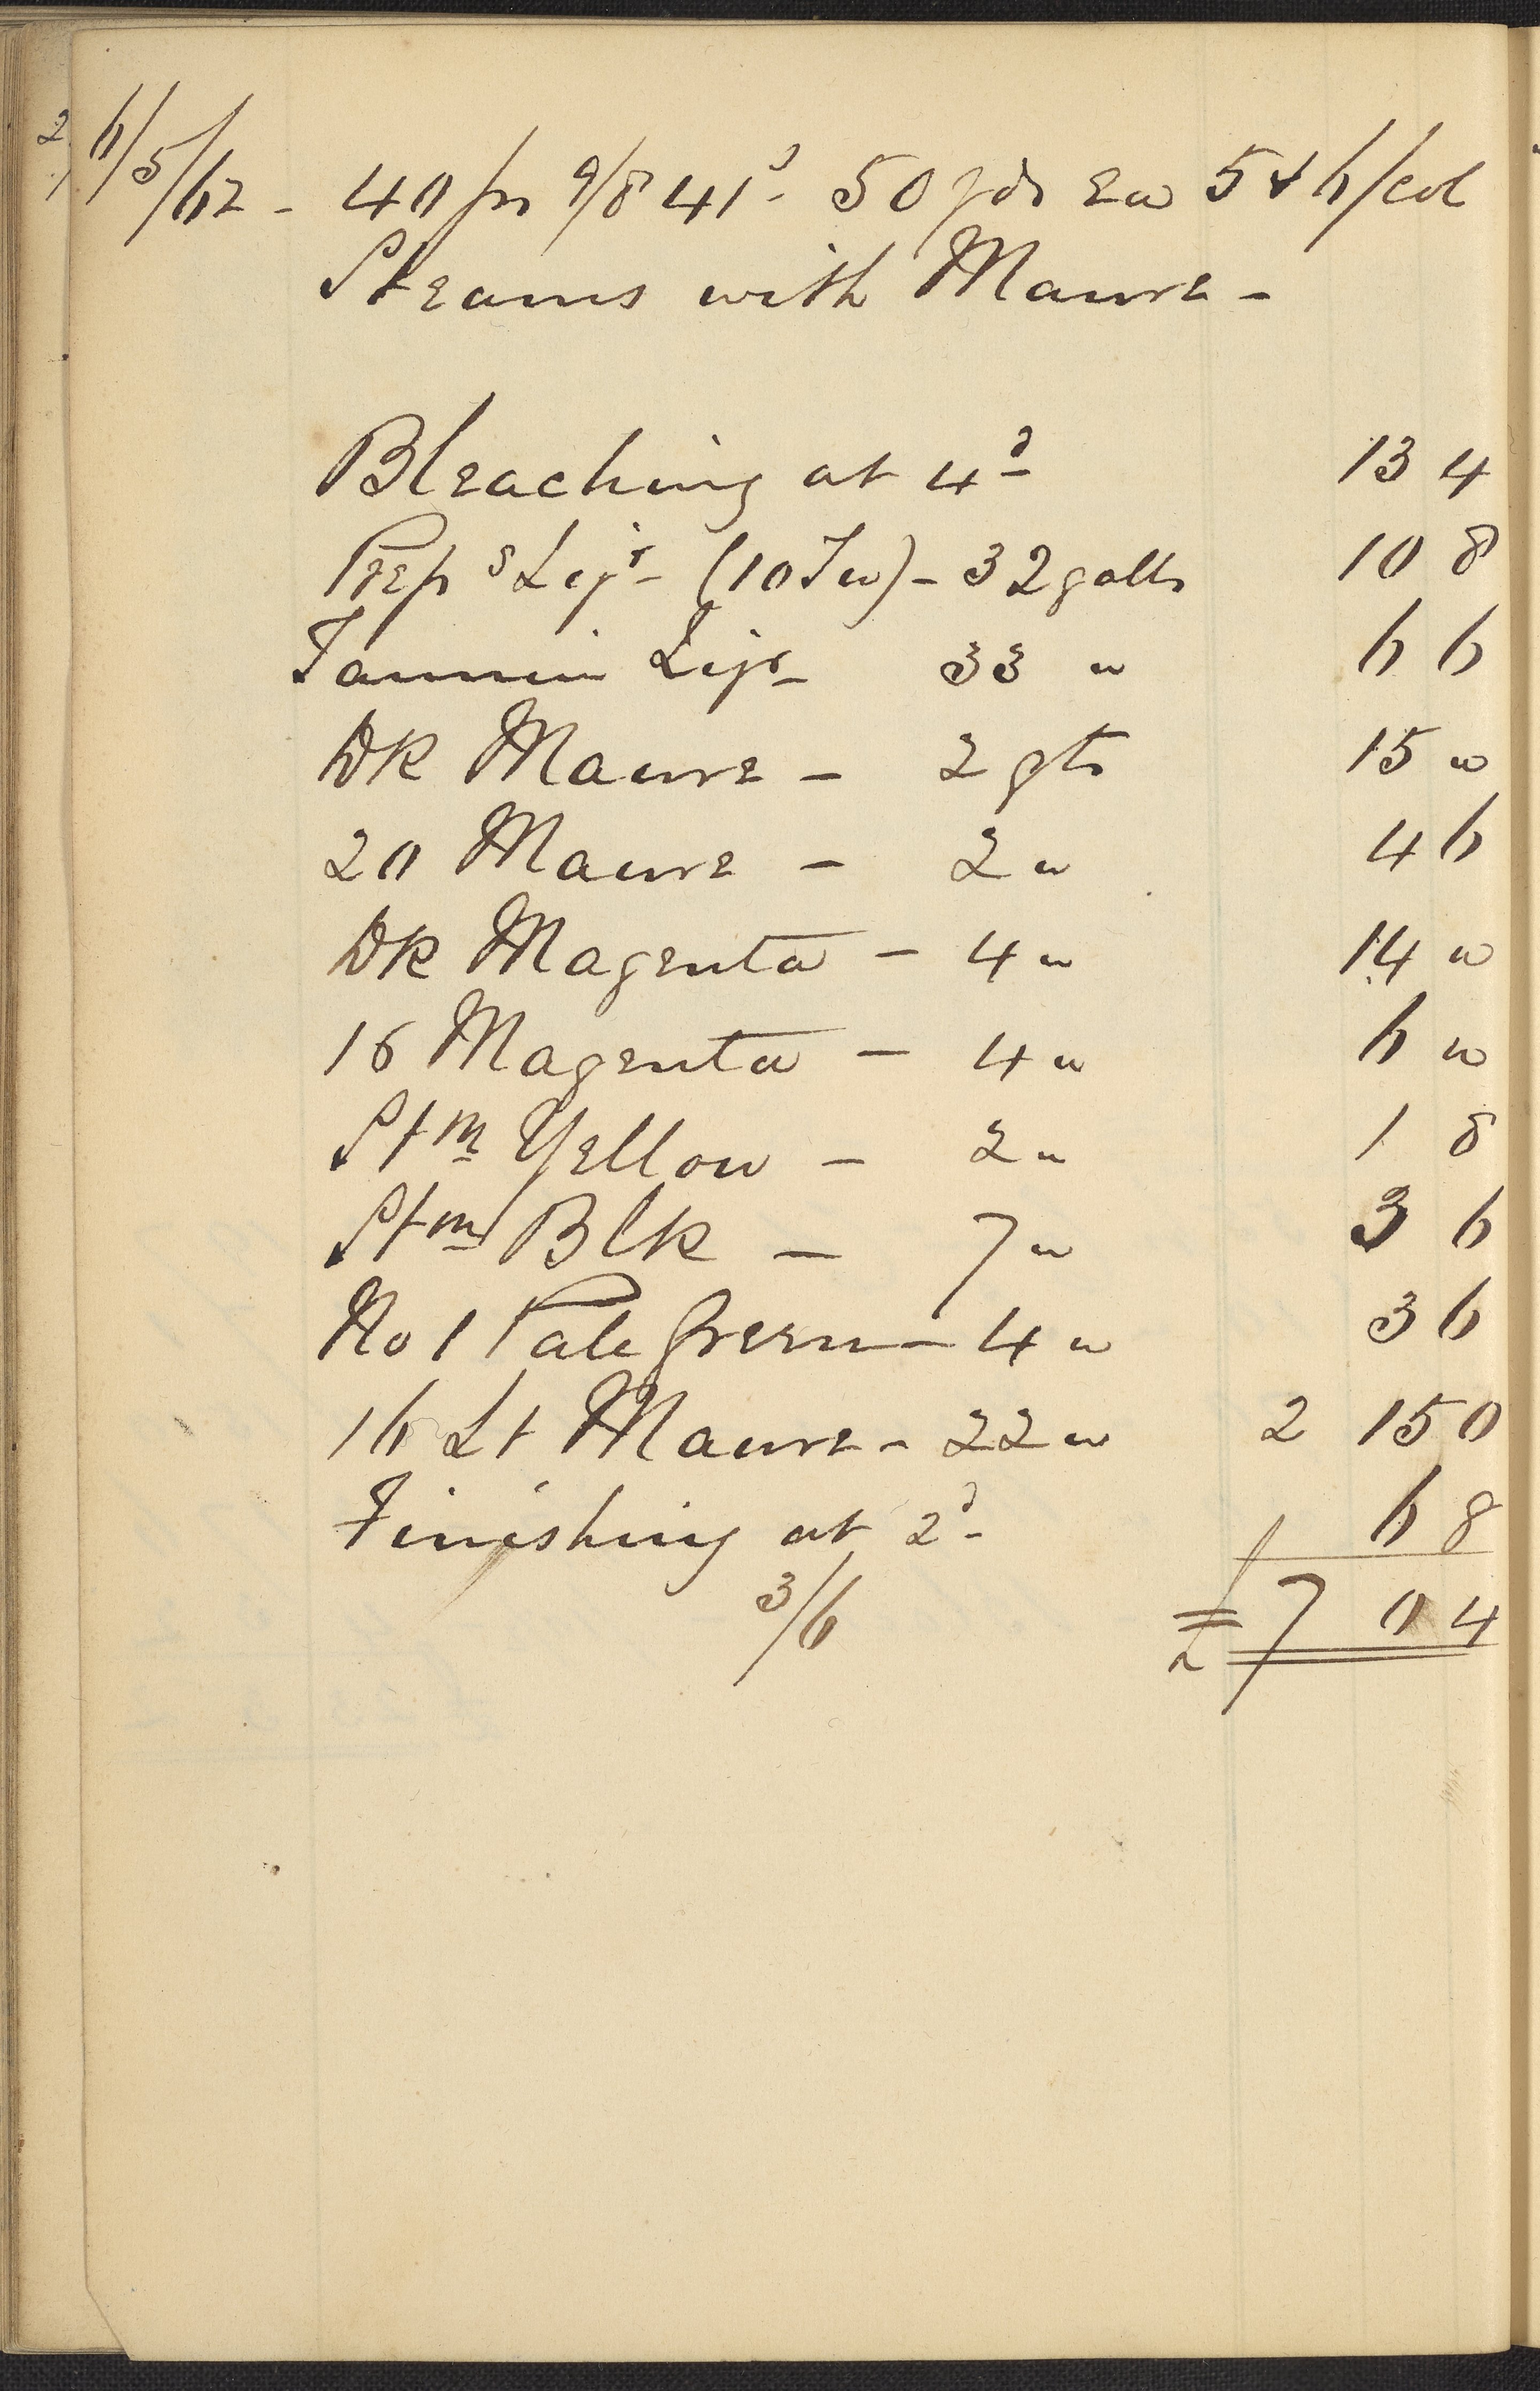 6/5/62 - 40 ps 9/8 41s. 50 yds ea 5 & 6/col
Steams with Mauve -
Bleaching at 4d 13 4
Prep s Liqr - (10 Tw) - 32 galls 10 8
Tannin Liqr - 33 " 6 6
Dk Mauve - 2 gts 15 "
20 Mauve - 2 " 4 6
Dk Magenta - 4 " 14 "
16 Magenta - 4 " 6 "
Stm Yellow - 2 " 1 8
Stm Blk - 7 " 3 6
No 1 Pale Green - 4 " 3 6
16 Lt Mauve - 22 " 2 15 0
Finishing at 2d - 6 8
3/6 £ 7 0 4